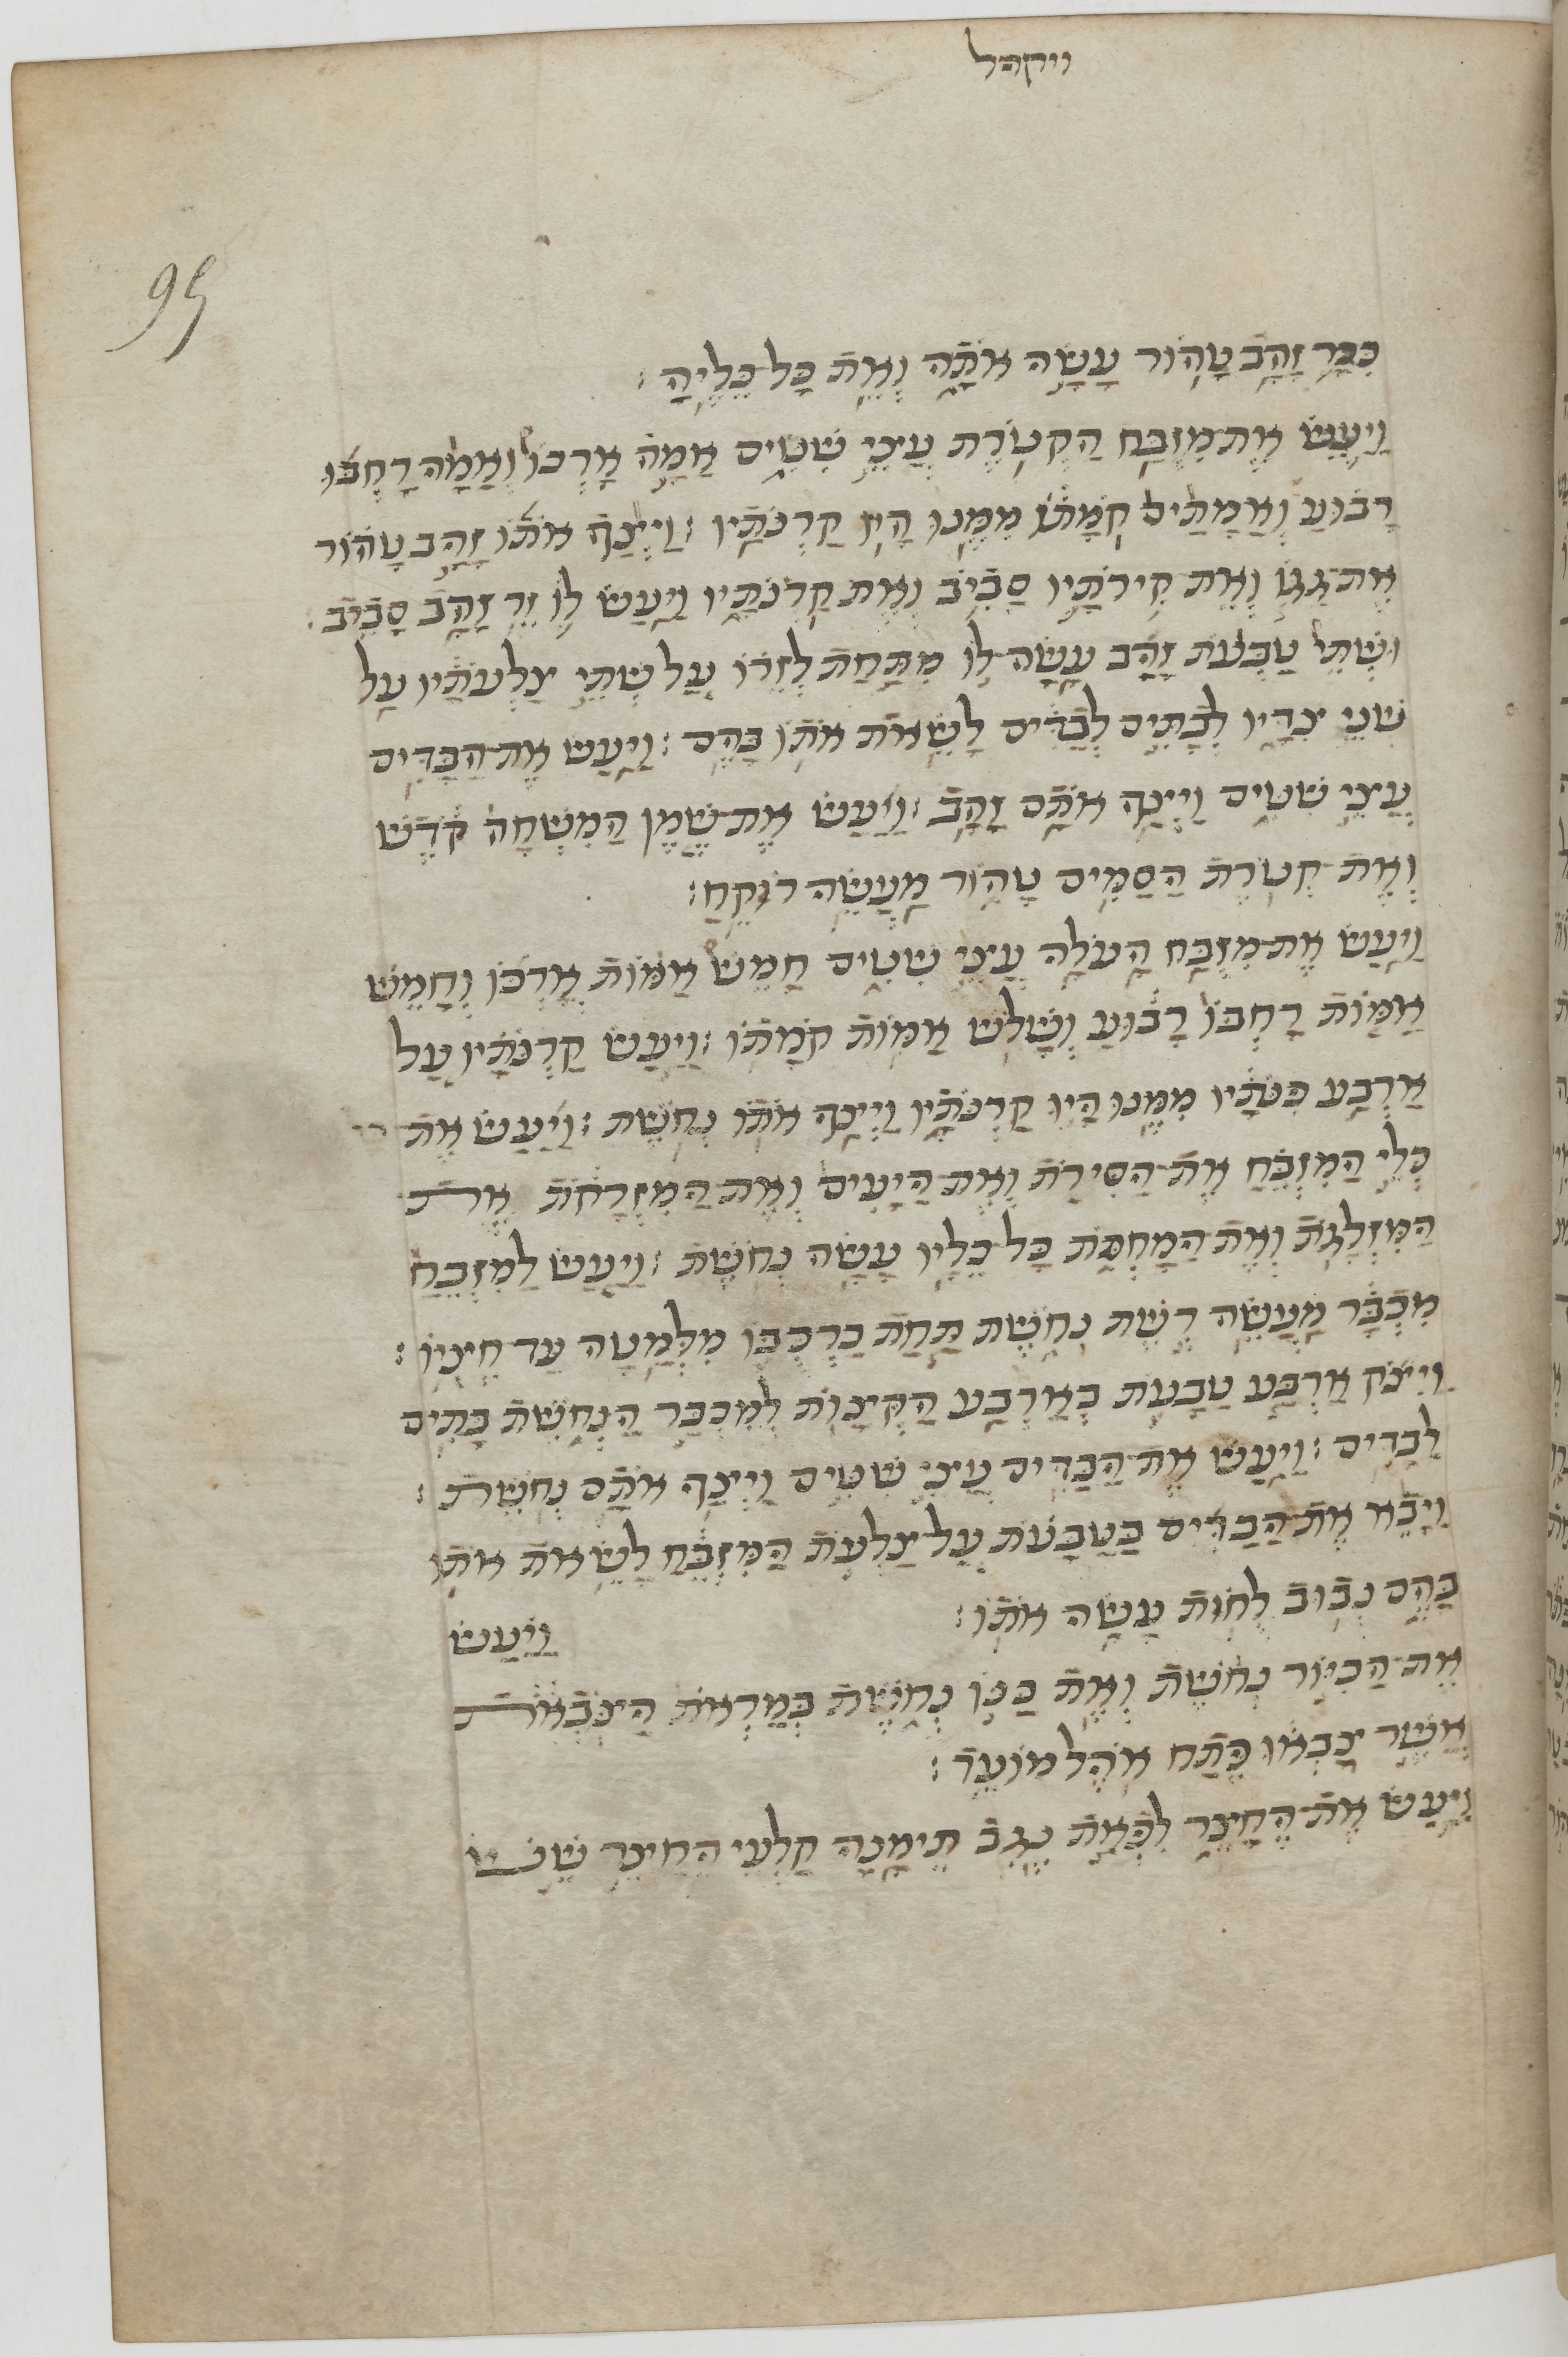 ויקהל
95
כִּכָּר זָהָב טָהוֹר עָשָׂה אֹתָהּ וְאֵת כָּל־כֵּלֶיהָ׃
וַיַּעַשׂ אֶת־מִזְבַּח הַקְּטֹרֶת עֲצֵי שִׁטִּים אַמָּה אָרְכּוֹ וְאַמָּה רָחְבּוֹ
רָבוּעַ וְאַמָּתַיִם קֹמָתוֹ מִמֶּנּוּ הָיוּ קַרְנֹתָיו׃ וַיְצַף אֹתוֹ זָהָב טָהוֹר
אֶת־גַּגּוֹ וְאֶת־קִירֹתָיו סָבִיב וְאֶת־קַרְנֹתָיו וַיַּעַשׂ לוֹ זֵר זָהָב סָבִיב׃
וּשְׁתֵּי טַבְּעֹת זָהָב עָשָׂה־לוֹ מִתַּחַת לְזֵרוֹ עַל שְׁתֵּי צַלְעֹתָיו עַל
שְׁנֵי צִדָּיו לְבָתִּים לְבַדִּים לָשֵׂאת אֹתוֹ בָּהֶם׃ וַיַּעַשׂ אֶת־הַבַּדִּים
עֲצֵי שִׁטִּים וַיְצַף אֹתָם זָהָב׃ וַיַּעַשׂ אֶת־שֶׁמֶן הַמִּשְׁחָה קֹדֶשׁ
וְאֶת־קְטֹרֶת הַסַּמִּים טָהוֹר מַעֲשֵׂה רוֹקֵחַ׃
וַיַּעַשׂ אֶת־מִזְבַּח הָעֹלָה עֲצֵי שִׁטִּים חָמֵשׁ אַמּוֹת אָרְכּוֹ וְחָמֵשׁ
אַמּוֹת רָחְבּוֹ רָבוּעַ וְשָׁלֹשׁ אַמּוֹת קֹמָתוֹ׃ וַיַּעַשׂ קַרְנֹתָיו עַל
אַרְבַּע פִּנֹּתָיו מִמֶּנּוּ הָיוּ קַרְנֹתָיו וַיְצַף אֹתוֹ נְחֹשֶׁת׃ וַיַּעַשׂ אֶת
כְּלֵי הַמִּזְבֵּחַ אֶת־הַסִּירֹת וְאֶת־הַיָּעִים וְאֶת־הַמִּזְרָקֹת אֶת
הַמִּזְלָגֹת וְאֶת־הַמַּחְתֹּת כָּל־כֵּלָיו עָשָׂה נְחֹשֶׁת׃ וַיַּעַשׂ לַמִּזְבֵּחַ
מִכְבָּר מַעֲשֵׂה רֶשֶׁת נְחֹשֶׁת תַּחַת כַּרְכֻּבּוֹ מִלְּמַטָּה עַד־חֶצְיוֹ׃
וַיִּצֹק אַרְבַּע טַבָּעֹת בְּאַרְבַּע הַקְּצָוֹת לְמִכְבַּר הַנְּחֹשֶׁת בָּתִּים
לַבַּדִּים׃ וַיַּעַשׂ אֶת־הַבַּדִּים עֲצֵי שִׁטִּים וַיְצַף אֹתָם נְחֹשֶׁת׃
וַיָּבֵא אֶת־הַבַּדִּים בַּטַּבָּעֹת עַל־צַלְעֹת הַמִּזְבֵּחַ לָשֵׂאת אֹתוֹ
בָּהֶם נְבוּב לֻחֹת עָשָׂה אֹתוֹ׃ וַיַּעַשׂ
אֶת־הַכִּיּוֹר נְחֹשֶׁת וְאֵת כַּנּוֹ נְחֹשֶׁת בְּמַרְאֹת הַצֹּבְאֹת
אֲשֶׁר צָבְאוּ פֶּתַח אֹהֶל מוֹעֵד׃
וַיַּעַשׂ אֶת־הֶחָצֵר לִפְאַת נֶגֶב תֵּימָנָה קַלְעֵי הֶחָצֵר שֵׁשׁ